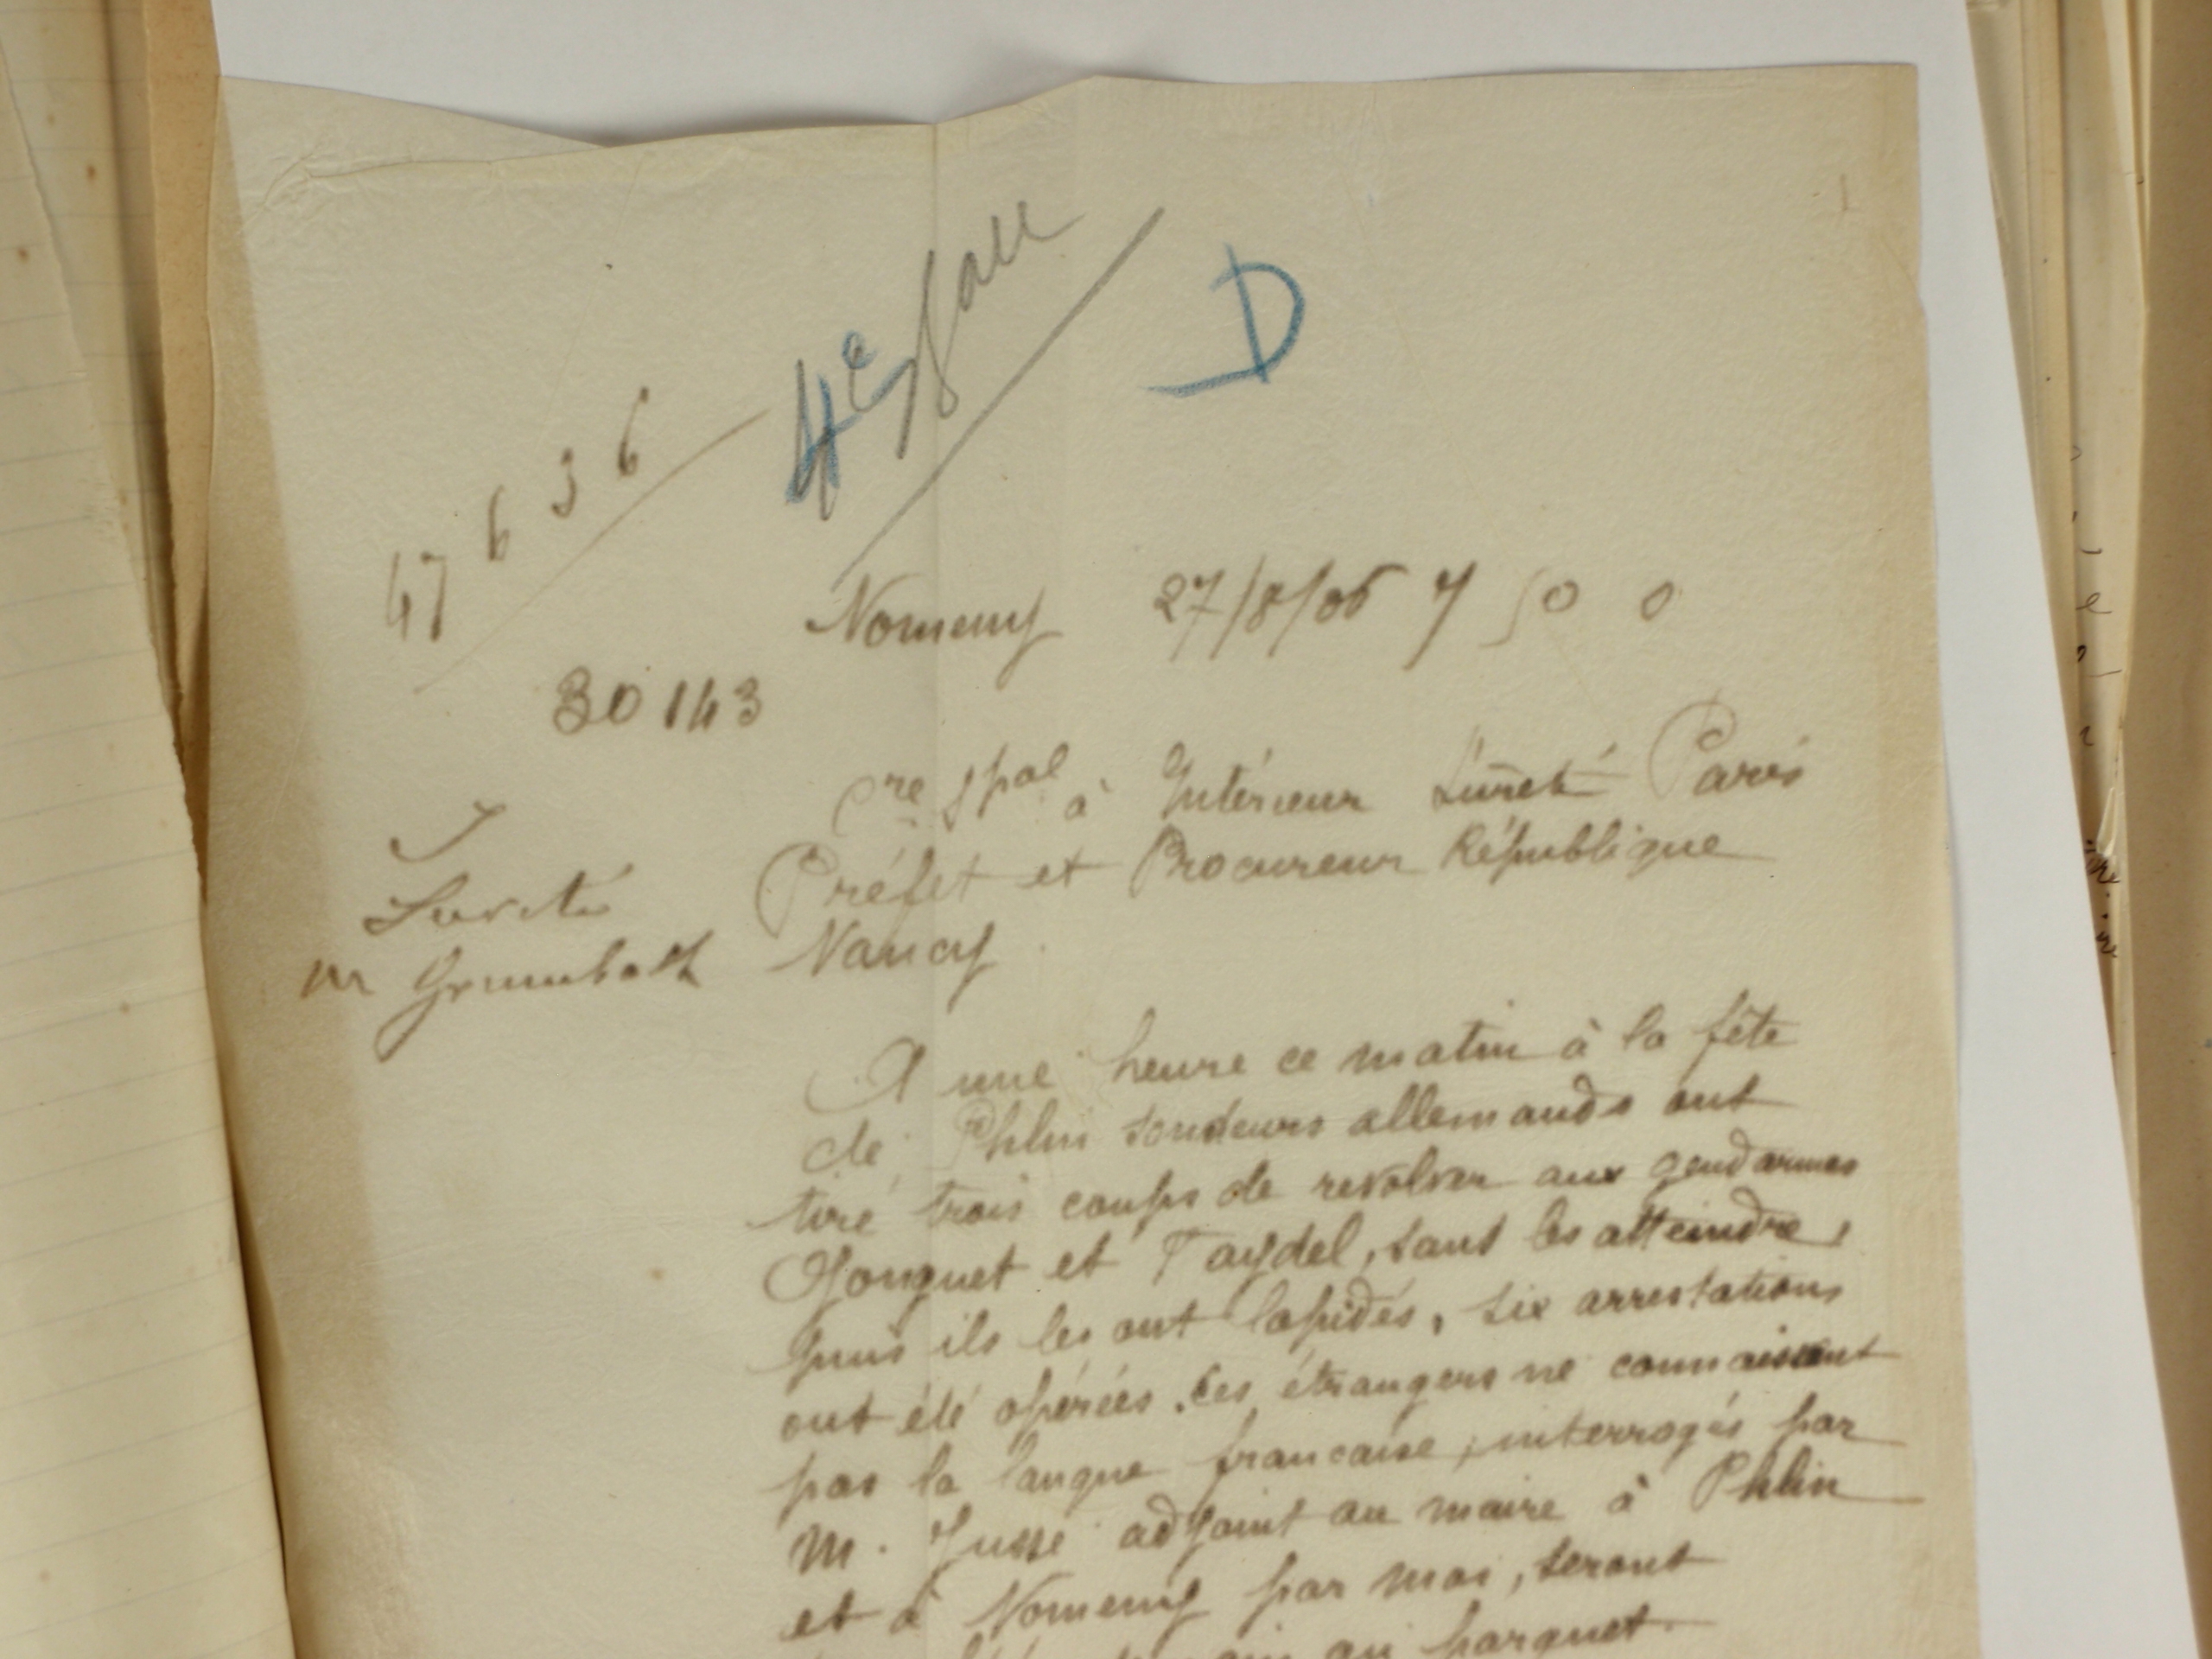 4e Bau
D
47636
Nomeny 27/8/06 7 50
30143
Cre spal à Intérieur Sûreté Paris
Préfet et Procureur République
Nancy
Sureté
M Grumbach
A une heure ce matin à la fête
de Phlin sondeurs allemands ont
tiré trois coups de revolver aux gendarmes
et Taydel, sans les atteindre,
puis ils les ont lapidés, six arrestations
ont été opérées. Ces étrangers ne connaissent
pas la langue francaise, interrogés par
M. adjoint au maire à Phlin
et à Nomeny par moi, seront
au parquet.